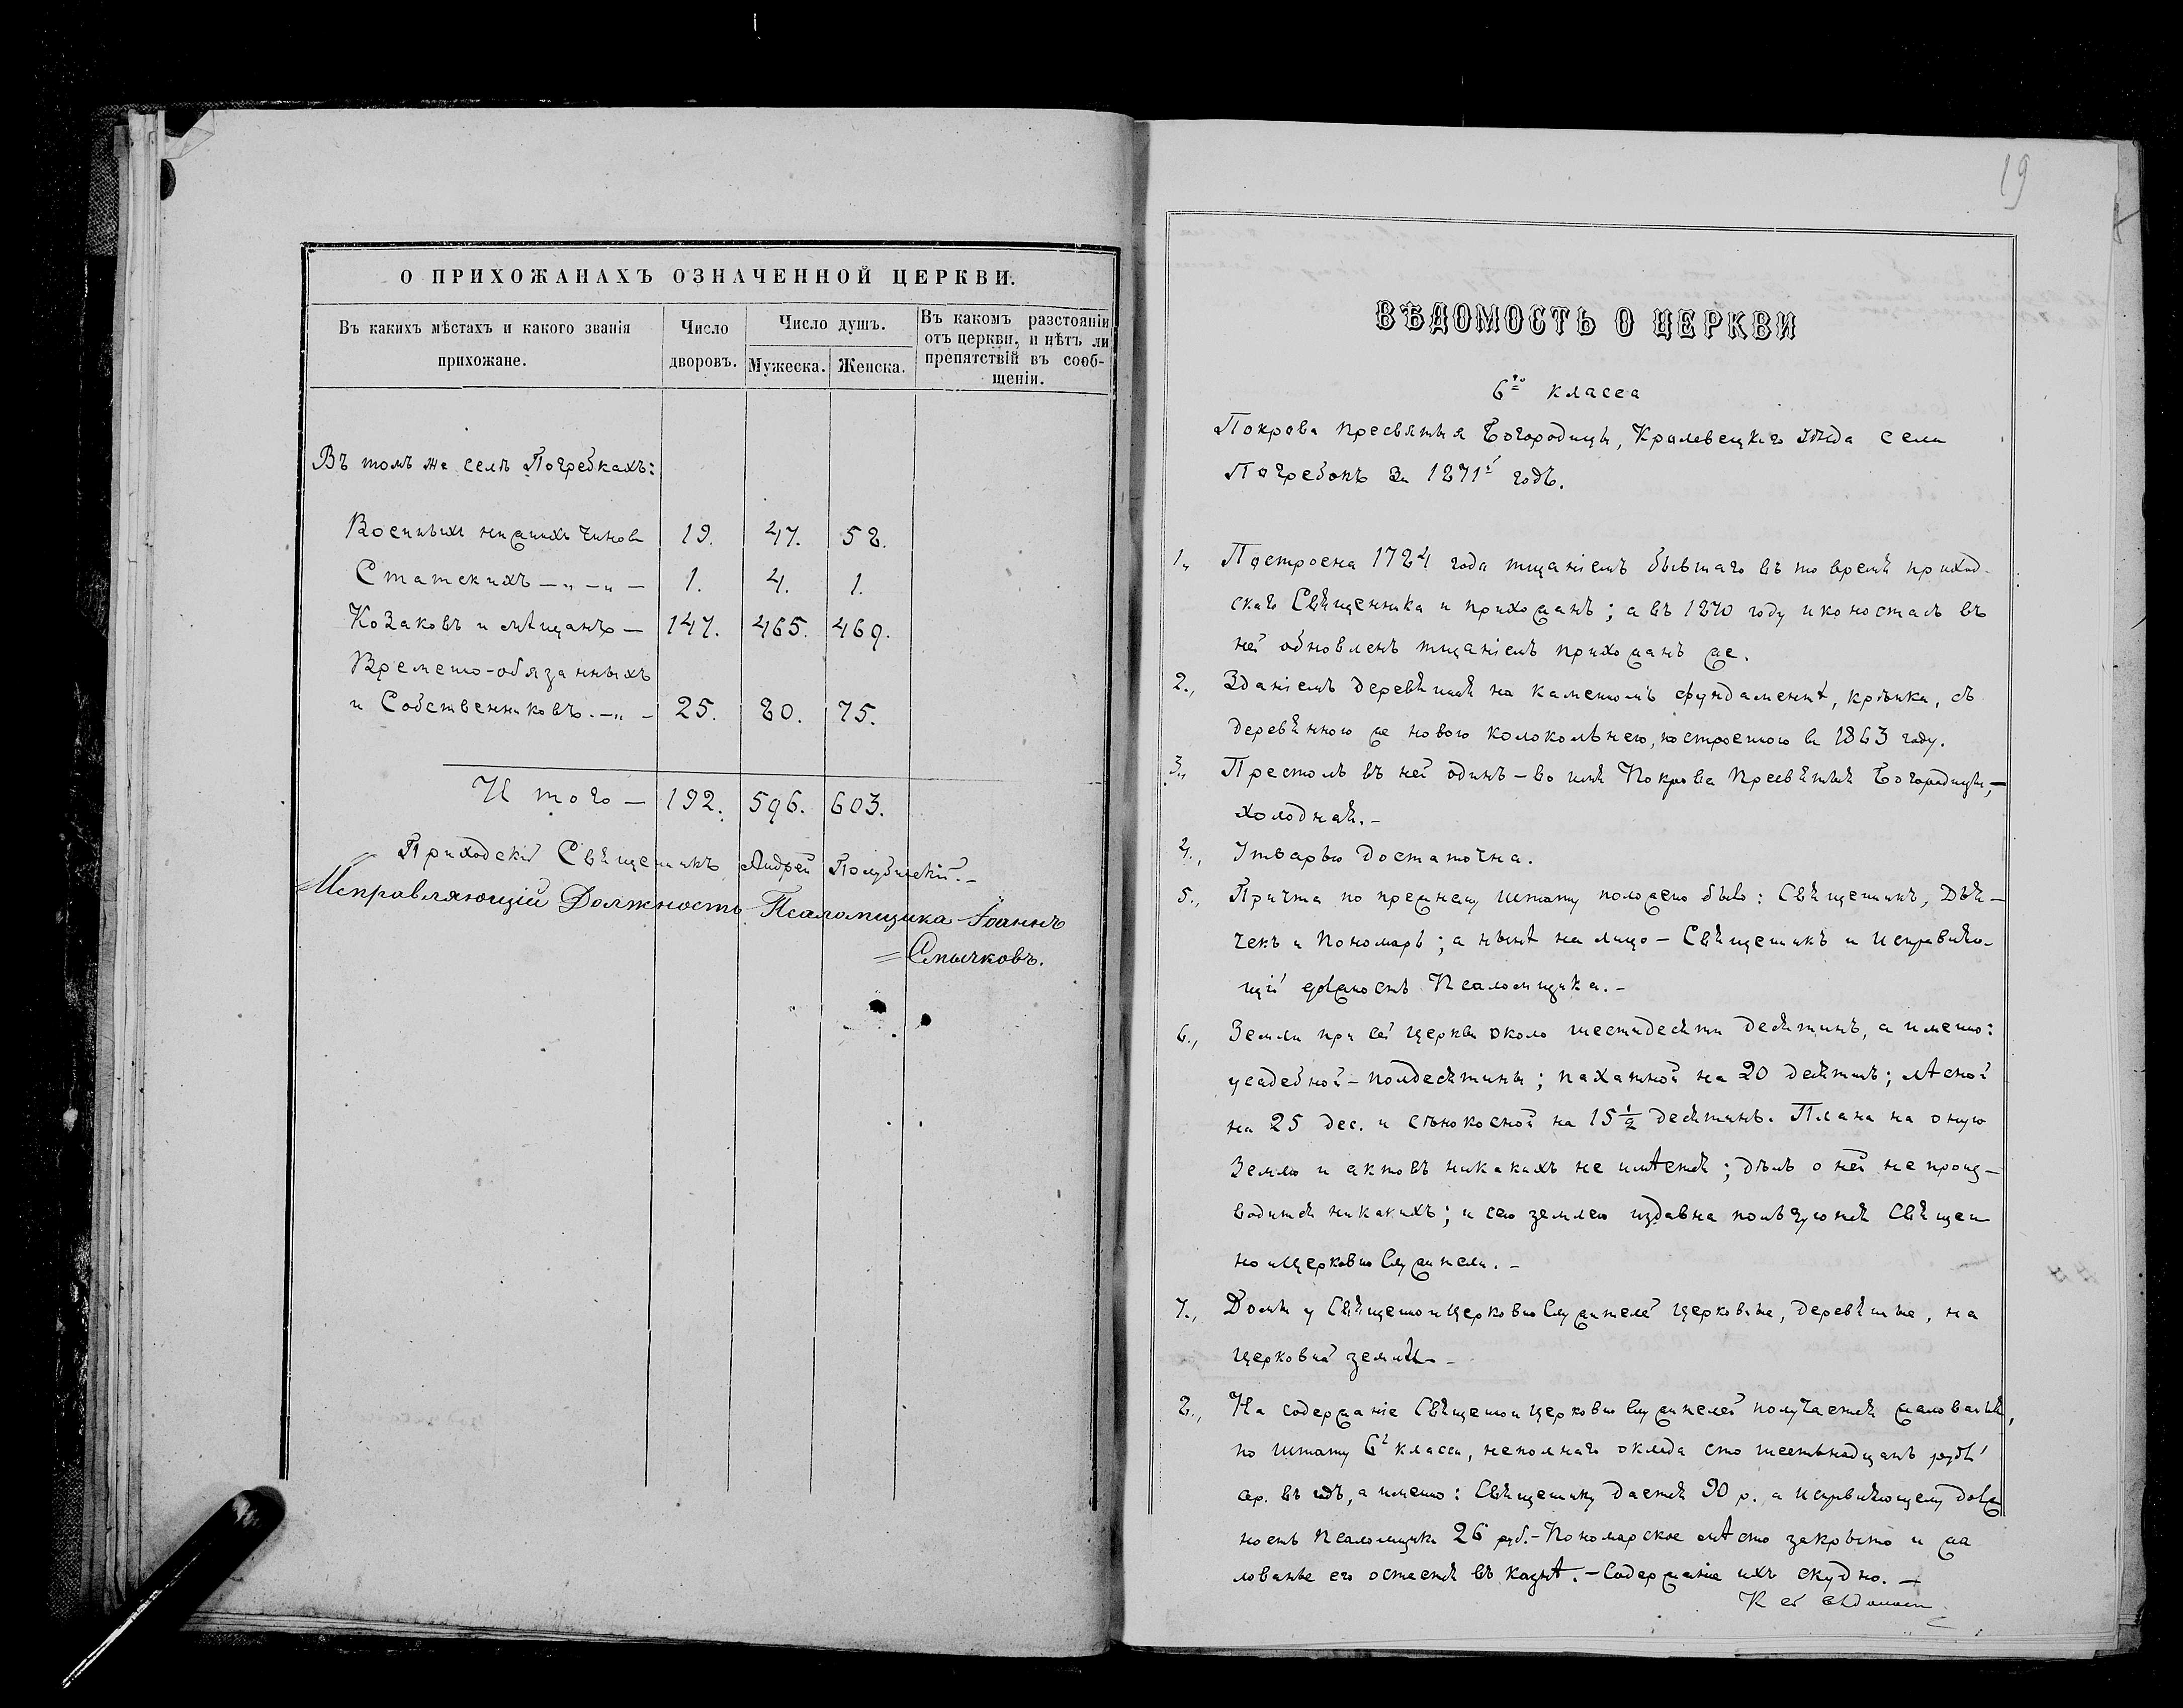 О ПРИХОЖАНАХЪ ОЗНАЧЕННОЙ ЦЕРКВИ.
Въ какихъ мѣстахъ и какого званія прихожане.
Число дворовъ.
Число душъ.
Мужеска.
Женска.
Въ какомъ разстояніи отъ церкви, и нѣтъ ли препятствій въ сообщеніи.
Въ томъ же селѣ Погребкахъ:
Военныхъ нижнихъ чиновъ 19. 47. 58.
Статскихъ — „ — „ — 1. 4. 1.
Козаковъ и мѣщанъ — 147. 465. 469.
Временно-обязанныхъ
и Собственниковъ. — „ — 25. 80. 75.
Итого — 192. 596. 603.
Приходскій Священникъ Андрей
Исправляющій Должность Псаломщика Іоаннъ
Смычковъ.
19
ВѢДОМОСТЬ О ЦЕРКВИ
6го класса
Покрова Пресвятыя Богородицы, Кролевецкаго уѣзда села
Погребокъ за 1871й годъ.
1., Построена 1724 года тщаніемъ бывшаго въ то время приход-
скаго Священника и прихожанъ; а въ 1870 году иконостасъ въ
ней обновленъ тщаніемъ прихожанъ же.
2., Зданіемъ деревянная на каменномъ фундаментѣ, крѣпка, съ
деревянною же новою колокольнею, построенною въ 1863 году.
3., Престолъ въ ней одинъ — во имя Покрова Пресвятыя Богородицы, —
холодная. —
4., Утварью достаточна.
5., Причта по прежнему штату положено было: Священникъ, Дья-
чекъ и Пономарь; а нынѣ на лицо — Священникъ и Исправляю-
щій должность Псаломщика. —
6., Земли при сей церкви около шестидесяти десятинъ, а именно:
усадебной — полдесятины; пахатной на 20 десятинъ; лѣсной
на 25 дес. и сѣнокосной на 15 1/2 десятинъ. Плана на оную
землю и актовъ никакихъ не имѣется; дѣлъ о ней не произ-
водится никакихъ; и сею землею издавна пользуются Священ
но и Церковно Служители. —
7., Домы у Священно и Церковно Служителей церковные, деревянные, на
церковной землѣ. —
8., На содержаніе Священно и Церковно Служителей получается жалованья,
по штату 6го класса, неполнаго оклада сто шестьнадцать рублей
сер. въ годъ, а именно: Священнику дается 90 р. а исправляющему долж
ность псаломщика 26 руб. — Пономарское мѣсто закрыто и жа
лованье его остается въ казнѣ. — Содержаніе ихъ скудно. —